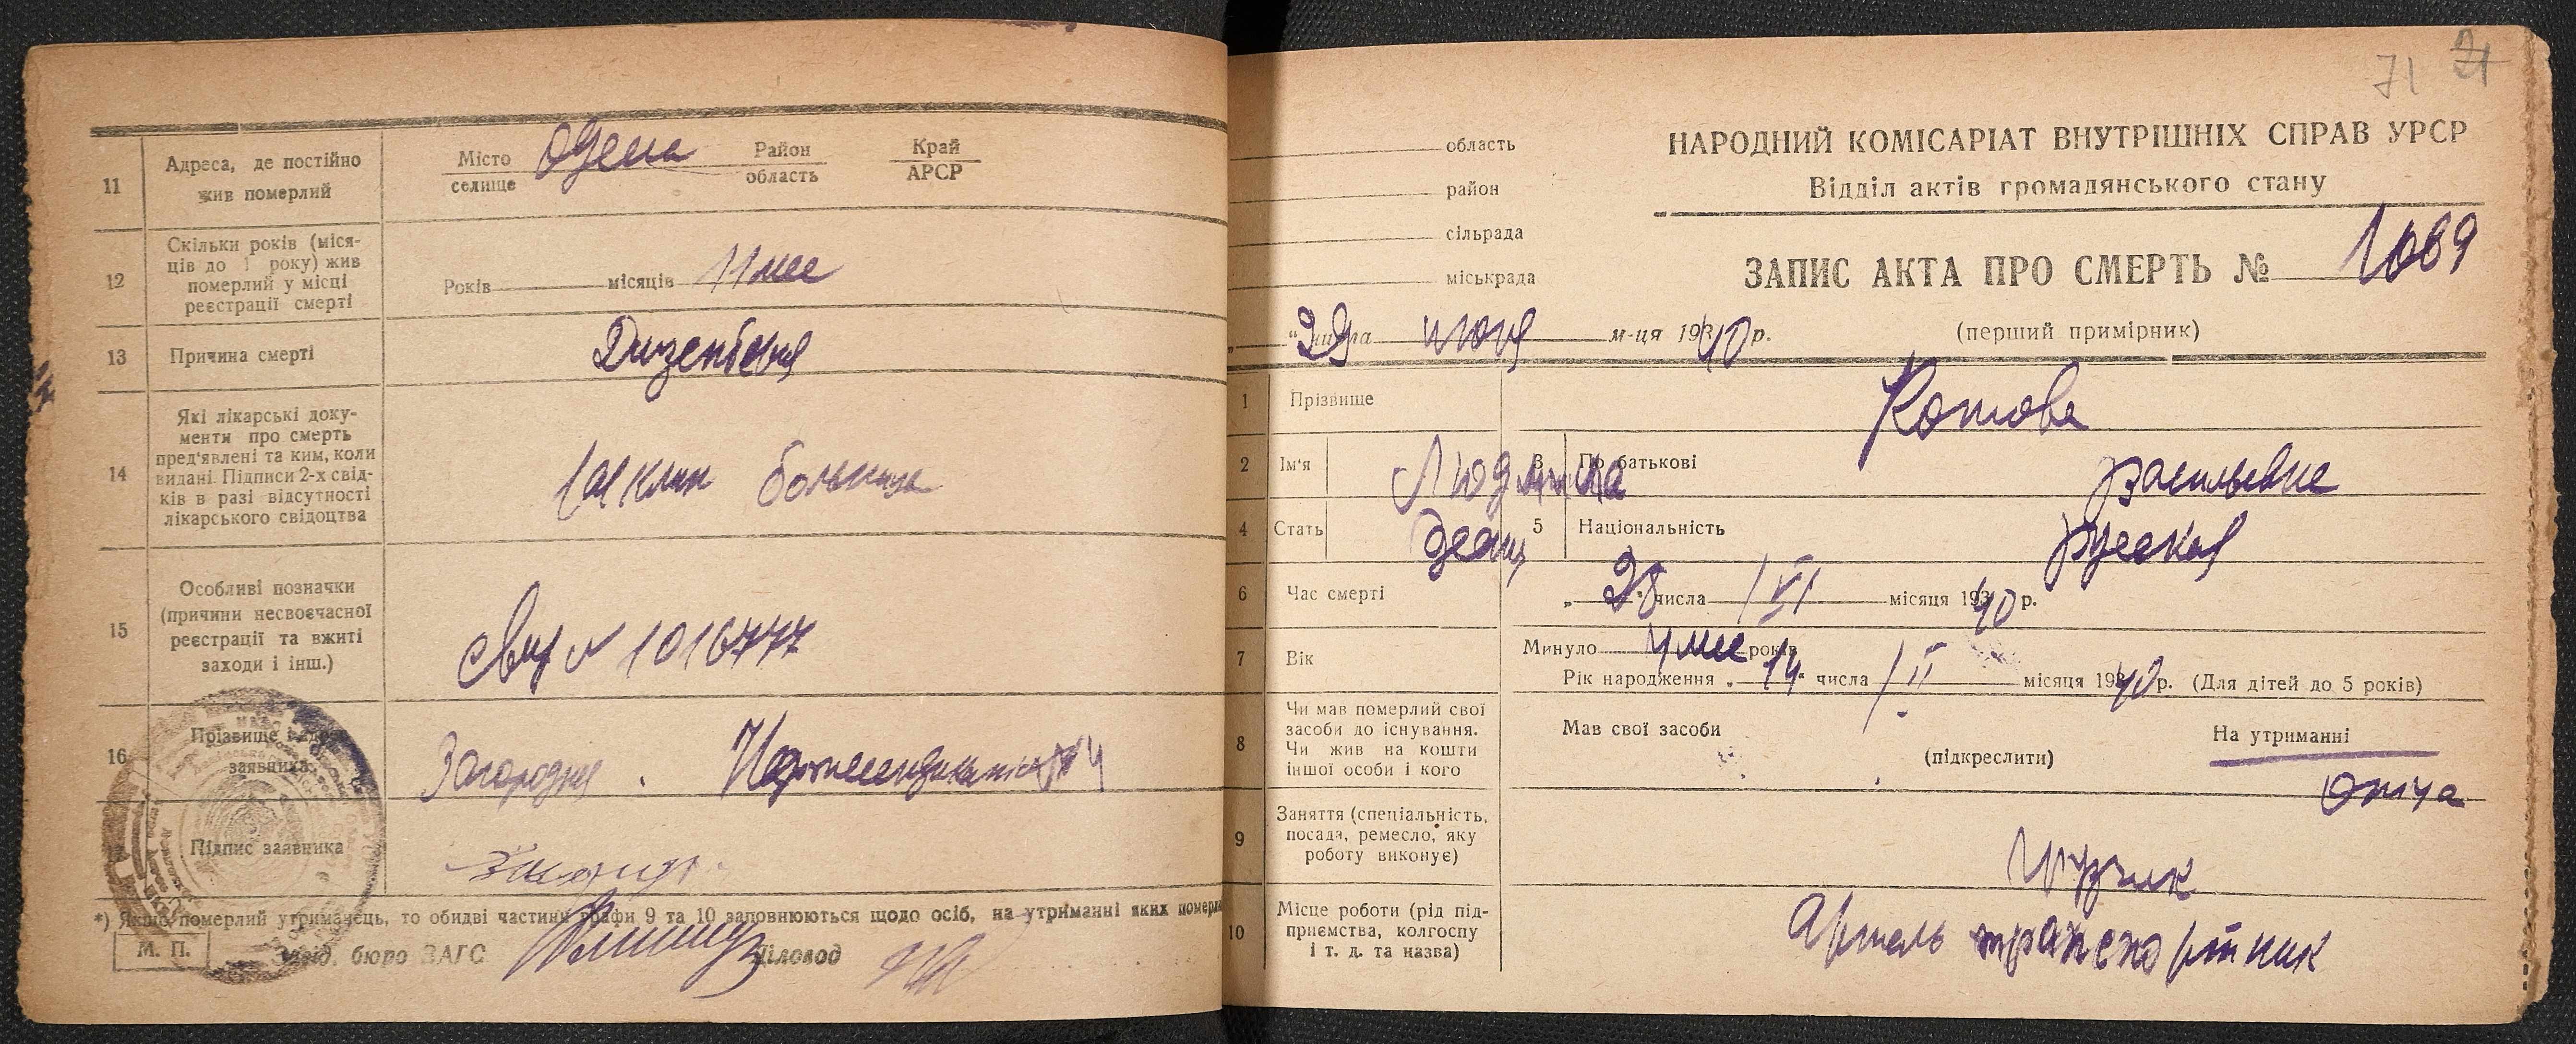 11
Адреса, де постійно
жив померлий
Місто
селище
Одеса
Район
область
Край
АРСР
12
Скільки років (міся-
ців до 1 року) жив
померлий у місці
реєстрації смерті
Років місяців 11 мес
13
Причина смерті
Дизентерия
14
Які лікарські доку-
менти про смерть
пред'явлені та ким, коли
видані. Підписи 2-х свід-
ків в разі відсутності
лікарського свідоцтва
клин больница
15
Особливі позначки
(причини несвоєчасної
реєстрації та вжиті
заходи і інш.)
№ 1016777
16
Прізвище і
заявника
Підпис заявника
*) Якщо померлий утриманець, то обидві частини графи 9 та 10 заповнюються щодо осіб, на утриманні яких
М. П.
Завід. бюро ЗАГС
Діловод
71
область
район
сільрада
міськрада
НАРОДНИЙ КОМІСАРІАТ ВНУТРІШНІХ СПРАВ УРСР
Відділ актів громадянського стану
ЗАПИС АКТА ПРО СМЕРТЬ № 1069
(перший примірник)
29 июня м-ця 1940 р.
1
Прізвище
Котова
2
Ім'я
Людмила
3
По батькові
Васильевна
4
Стать
5
Національність
Русская
6
Час смерті
„28" числа /VI місяця 1940 р.
7
Вік
Минуло 4 мес років
Рік народження „14" числа /II місяця 1940 р. (Для дітей до 5 років)
8
Чи мав померлий свої
засоби до існування.
Чи жив на кошти
іншої особи і кого
Мав свої засоби
(підкреслити)
На утриманні
Отца
9
Заняття (спеціальність,
посада, ремесло, яку
роботу виконує)
Грузчик
10
Місце роботи (рід під-
приємства, колгоспу
і т. д. та назва)
Артель транспортник